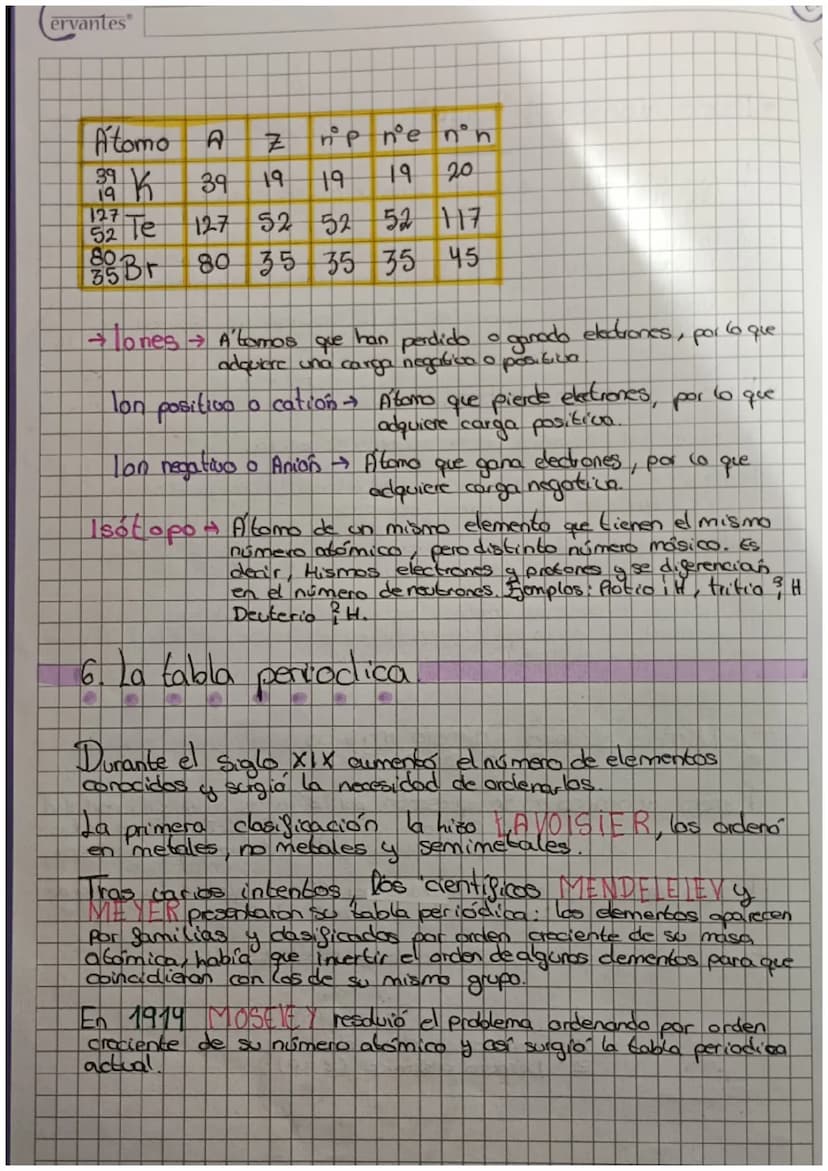 Cervantes®
Átomo A Z nºp nºe nºn
39 19 K 39 19 19 19 20
127 52 Te 127 52 52 52 117
80 35 Br 80 35 35 35 45
→ Iones → Átomos que han perdido o ganado electrones, por lo que
adquiere una carga negativa o positiva
Ion positivo o catión → Átomo que pierde eletrones, por lo que
adquiere carga positiva.
Ion negativo o Anión → Átomo que gana electrones, por lo que
adquiere carga negativa.
Isótopo → Átomo de un mismo elemento que tienen el mismo
número atómico, pero distinto número másico. Es
decir, Mismos electrones y protones y se diferencian
en el número de neutrones. Ejemplos: Protio 1 1 H, tritio 3 1 H
Deuterio 2 1 H.
6. La tabla periodica.
Durante el siglo XIX aumentó el número de elementos
conocidos y surgió la necesidad de ordenarlos.
La primera clasificación la hizo LAVOISIER, los ordenó
en metales, no metales y semimetales.
Tras varios intentos, Dos científicos MENDELEIEV y
MEYER presentaron su tabla periódica: los elementos aparecen
por familias y clasificados por orden creciente de su masa
atómica, había que invertir el orden de algunos elementos para que
coincidieran con los de su mismo grupo.
En 1914 MOSELEY resolvió el problema ordenando por orden
creciente de su número atómico y así surgió la tabla periodica
actual.